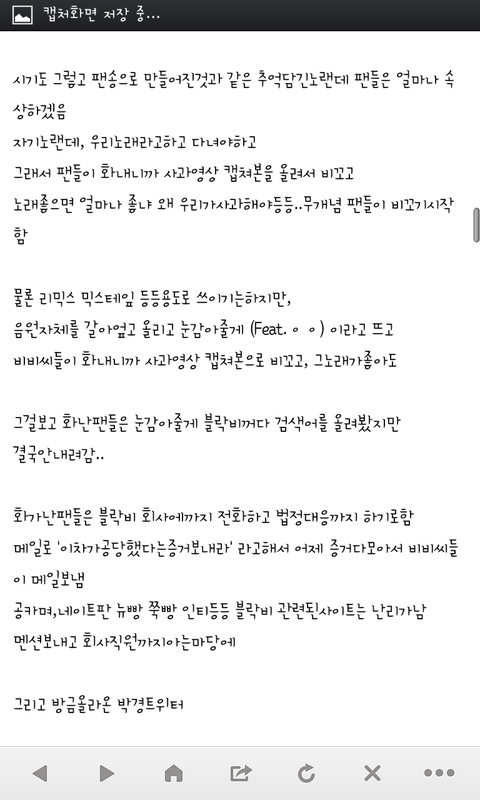 캡처화면 저장 중...
시기도 그렇고 팬송으로 만들어진것과 같은 추억담긴노랜데 팬들은 얼마나 속
상하겠음
자기노랜데, 우리노래라고하고 다녀야하고
그래서 팬들이 화내니까 사과영상 캡쳐본을 올려서 비꼬고
노래좋으면 얼마나 좋냐 왜 우리가사과해야등등..무개념 팬들이 비꼬기시작
함
물론 리믹스 믹스테잎 등등용도로 쓰이기는하지만,
음원자체를 갈아엎고 올리고 눈감아줄게 (Feat.ㅇㅇ) 이라고 뜨고
비비씨들이 화내니까 사과영상 캡쳐본으로 비꼬고, 그노래가좋아도
그걸보고 화난팬들은 눈감아줄게 블락비꺼다 검색어를 올려봤지만
결국안내려감..
화가난팬들은 블락비 회사에까지 전화하고 법정대응까지 하기로함
메일로 '이차가공당했다는증거보내라' 라고해서 어제 증거다모아서 비비씨들
이 메일보냄
공카며,네이트판 뉴빵 쭉빵 인티등등 블락비 관련된사이트는 난리가남
멘션보내고 회사직원까지아는마당에
그리고 방금올라온 박경트위터